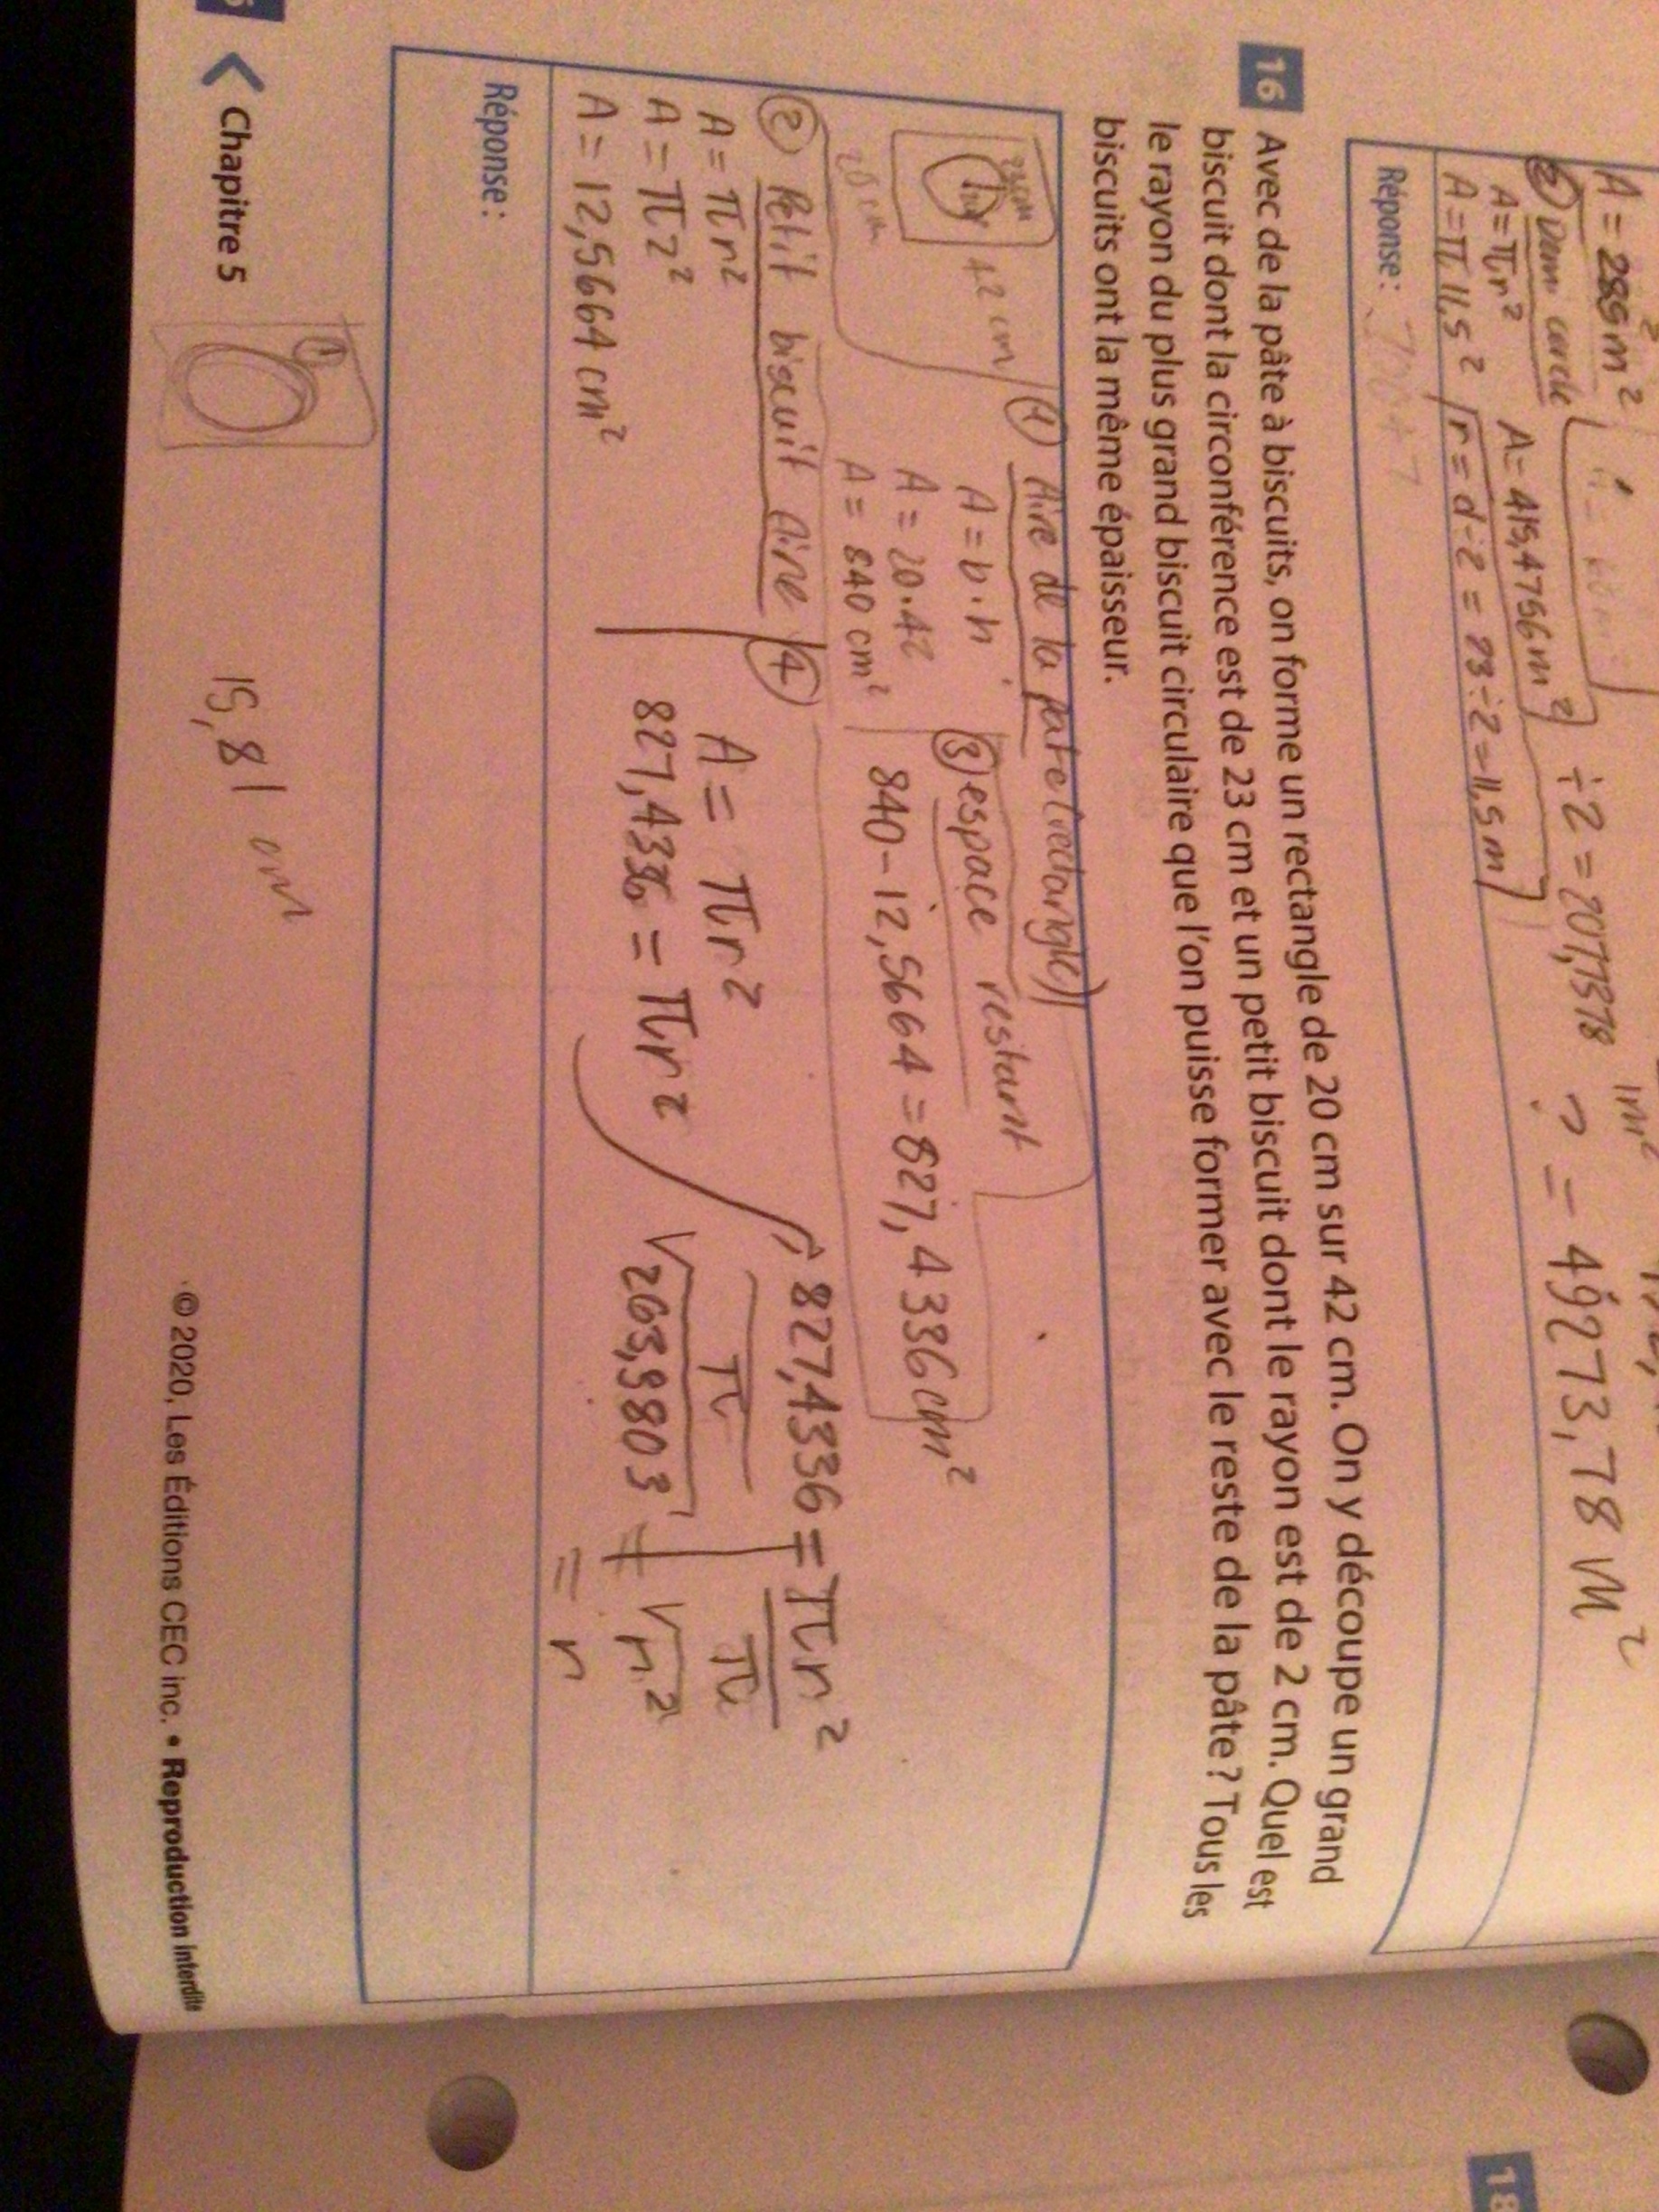 A = 285 m²
÷ 2 = 207,7378
= 49273,78 m²
② Demi cercle
A = πr²
A = π 11,5²
A = 415,4756 m²
r = d ÷ 2 = 23 ÷ 2 = 11,5 m
Réponse :
16 Avec de la pâte à biscuits, on forme un rectangle de 20 cm sur 42 cm. On y découpe un grand
biscuit dont la circonférence est de 23 cm et un petit biscuit dont le rayon est de 2 cm. Quel est
le rayon du plus grand biscuit circulaire que l'on puisse former avec le reste de la pâte ? Tous les
biscuits ont la même épaisseur.
23 cm
42 cm
20 cm
① Aire de la pate (rectangle)
A = b • h
A = 20 • 42
A = 840 cm²
③ espace restant
840 – 12,5664 = 827,4336 cm²
② Petit biscuit Aire
A = πr²
A = π2²
A = 12,5664 cm²
④
A = πr²
827,4336 = πr²
827,4336 = πr²
π π
√263,3803 = √r²
= r
Réponse :
Chapitre 5
①
15,81 cm
© 2020, Les Éditions CEC inc. • Reproduction interdite
18